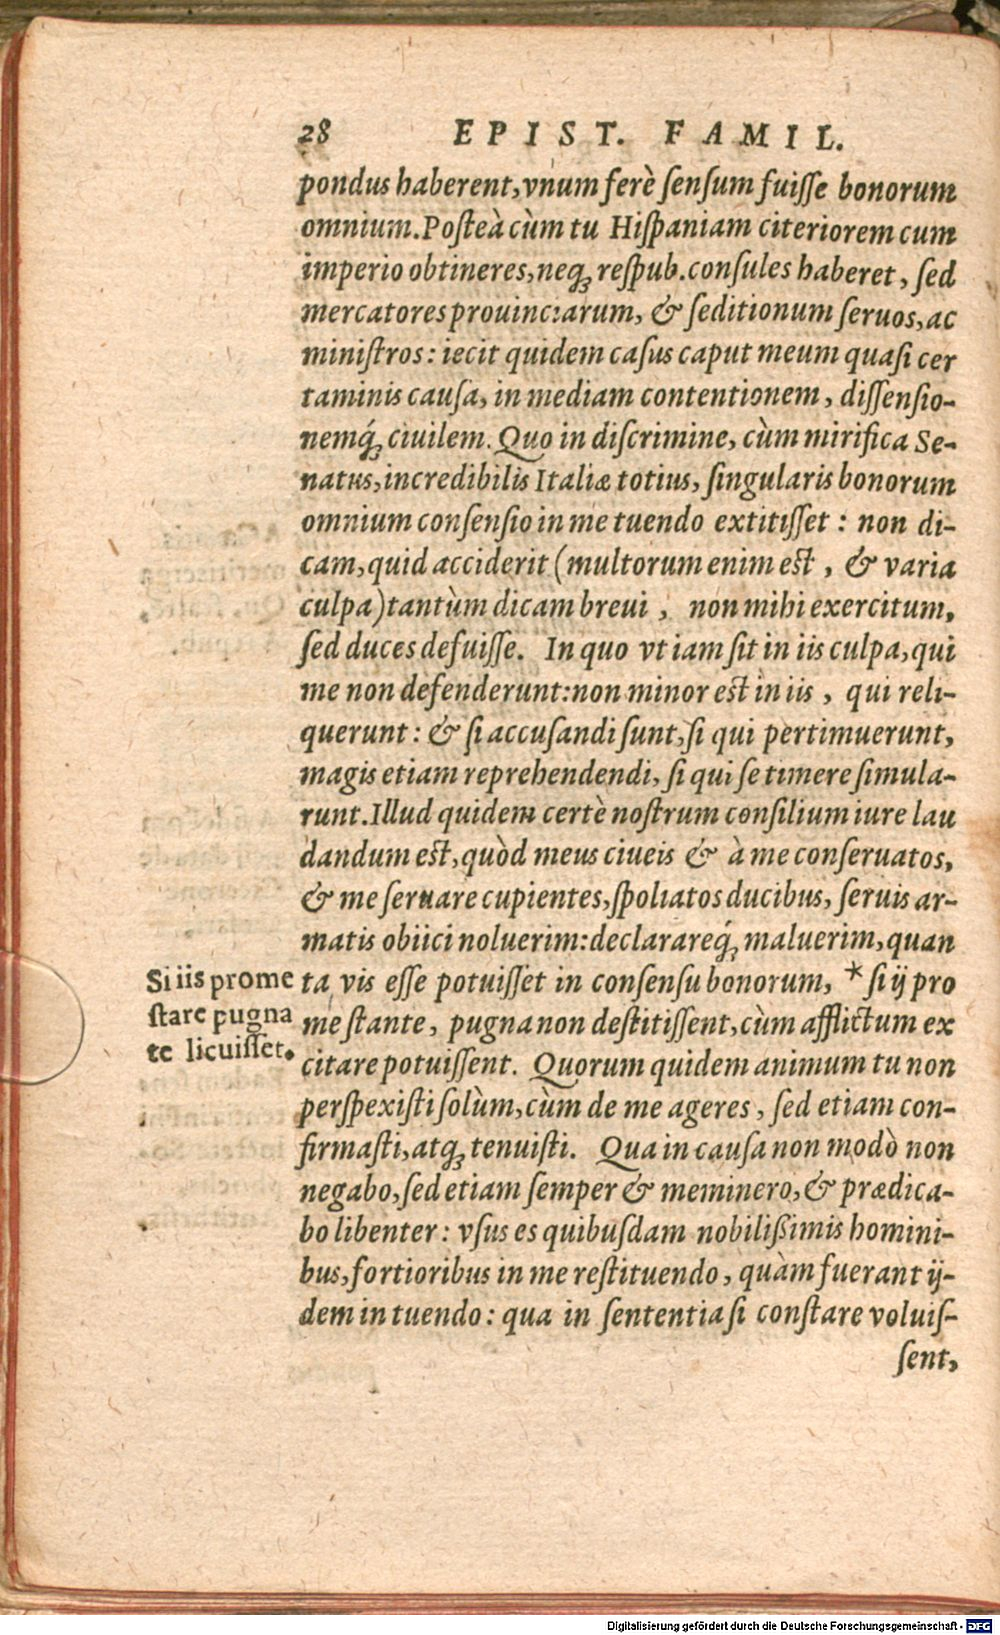 28 EPIST. FAMIL.
pondus haberent, vnum ferè ſenſum fuiſſe bonorum
omnium. Poſteà cùm tu Hiſpaniam citeriorem cum
imperio obtineres, neq́; reſpub. conſules haberet, ſed
mercatores prouinciarum, & ſeditionum ſeruos, ac
miniſtros: iecit quidem caſus caput meum quaſi cer
taminis cauſa, in mediam contentionem, diſſenſio-
nemq́; ciuilem. Quo in diſcrimine, cùm mirifica Se-
natus, incredibilis Italiæ totius, ſingularis bonorum
omnium conſenſio in me tuendo extitiſſet: non di-
cam, quid acciderit (multorum enim eſt, & varia
culpa) tantùm dicam breui, non mihi exercitum,
ſed duces defuiſſe. In quo vt iam ſit in iis culpa, qui
me non defenderunt: non minor eſt in iis, qui reli-
querunt: & ſi accuſandi ſunt, ſi qui pertimuerunt,
magis etiam reprehendendi, ſi qui ſe timere ſimula-
runt. Illud quidem certè noſtrum conſilium iure lau
dandum eſt, quòd meus ciueis & à me conſeruatos,
& me ſeruare cupientes, ſpoliatos ducibus, ſeruis ar-
matis obiici noluerim: declarareq́; maluerim, quan
ta vis eſſe potuiſſet in conſenſu bonorum, * ſi ij pro
me ſtante, pugna non deſtitiſſent, cùm afflictum ex
citare potuiſſent. Quorum quidem animum tu non
perſpexiſti ſolùm, cùm de me ageres, ſed etiam con-
firmaſti, atq; tenuiſti. Qua in cauſa non modò non
negabo, ſed etiam ſemper & meminero, & prædica-
bo libenter: vſus es quibuſdam nobilißimis homini-
bus, fortioribus in me reſtituendo, quàm fuerant ij-
dem in tuendo: qua in ſententia ſi conſtare voluiſ-
ſent,
Si iis prome
ſtare pugna
te licuiſſet.
Digitalisierung gefördert durch die Deutsche Forschungsgemeinschaft - DFG